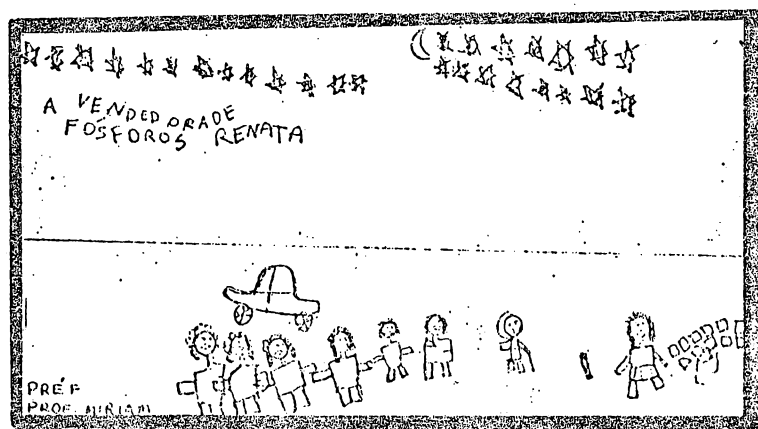 A VENDEDORA DE
FÓSFOROS RENATA
PRÉ F
PROF MIRIAM